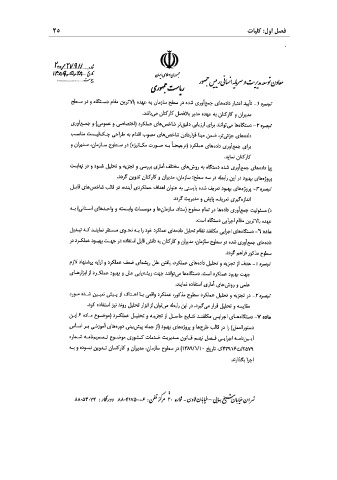 فصل اول: کلیات ۲۵
جمهوری اسلامی ایران
ریاست جمهوری
معاون توسعه مدیریت و سرمایه انسانی رئیس جمهور
تبصره ۱- تأیید اعتبار داده‌های جمع‌آوری شده در سطح سازمان به عهده بالاترین مقام دستگاه و در سطح
مدیران و کارکنان به عهده مدیر بلافصل کارکنان می‌باشد.
تبصره ۲- دستگاه‌ها می‌توانند برای ارزیابی دقیق‌تر شاخص‌های عملکرد (اختصاصی و عمومی) و جمع‌آوری
داده‌های جزئی‌تر، ضمن مبنا قراردادن شاخص‌های مصوب اقدام به طراحی چک‌لیست مناسب
برای جمع‌آوری داده‌های عملکرد (ترجیحاً به صورت مکانیزه) در سطوح سازمان، مدیران و
کارکنان نمایند.
ج) داده‌های جمع‌آوری شده دستگاه به روش‌های مختلف آماری بررسی و تجزیه و تحلیل شود و در نهایت
پروژه‌های بهبود در این رابطه در سه سطح: سازمان، مدیران و کارکنان تدوین گردد.
تبصره ۳- پروژه‌های بهبود تعریف شده بایستی به عنوان اهداف عملکردی آینده در قالب شاخص‌های قابل
اندازه‌گیری تعریف، پایش و مدیریت گردد.
د) مسئولیت جمع‌آوری داده‌ها در تمام سطوح (ستاد سازمان‌ها و موسسات وابسته و واحدهای استانی) به
عهده بالاترین مقام اجرایی دستگاه است.
ماده ۶- دستگاه‌های اجرایی مکلفند نظام تحلیل داده‌های عملکرد خود را به نحوی مستقر نمایند که تبدیل
داده‌های جمع‌آوری شده در سطوح سازمان، مدیران و کارکنان به دانش قابل استفاده در جهت بهبود عملکرد در
سطوح مذکور فراهم گردد.
تبصره ۱- هدف از تجزیه و تحلیل داده‌های عملکرد، یافتن علل ریشه‌ای ضعف عملکرد و ارایه پیشنهاد لازم
جهت بهبود عملکرد است. دستگاه‌ها می‌توانند جهت ریشه‌یابی علل و بهبود عملکرد از ابزارهای
علمی و روش‌های آماری استفاده نمایند.
تبصره ۲- در تجزیه و تحلیل عملکرد سطوح مذکور، عملکرد واقعی با اهداف از پیش تعیین شده مورد
مقایسه و تحلیل قرار می‌گیرد. در این رابطه می‌توان از ابزار تحلیل روند نیز استفاده کرد.
ماده ۷- دستگاه‌های اجرایی مکلفند نتایج حاصل از تجزیه و تحلیل عملکرد (موضوع ماده ۶ این
دستورالعمل) را در قالب طرح‌ها و پروژه‌های بهبود (از جمله پیش‌بینی دوره‌های آموزشی بر اساس
آیین‌نامه اجرایی فصل نهم قانون مدیریت خدمات کشوری موضوع تصویب‌نامه شماره
در سطوح سازمان، مدیران و کارکنان تدوین نموده و به
اجرا بگذارند.